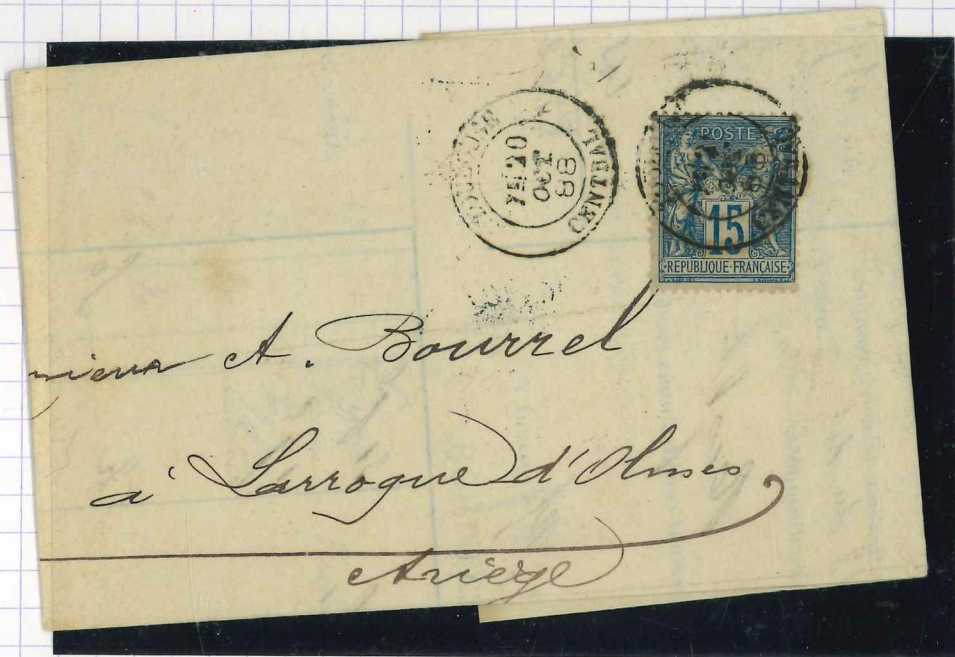 TOULOUSE CENTRAL
7E 20
OCT
88
POSTE
15
REPUBLIQUE FRANÇAISE
CENTRAL
nsieur A. Bourrel
à Larroque d'Olmes
Ariège